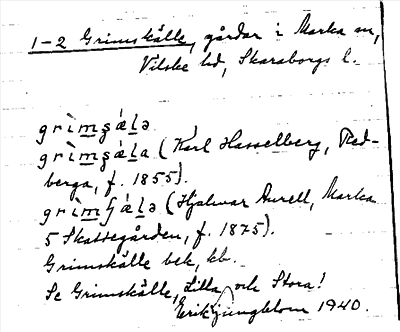 1-2 Grimskälle, gårdar i Marka sn,
Vilske hd, Skaraborgs l.
grìmşǽlə
grìmşǽla (Karl Hasselberg, Red-
berga, f. 1855).
grìmʃǽlə (Hjalmar Aurell, Marka
5 Skattegården, f. 1875).
Grimskälle bek, kb.
Se Grimskälle, Lilla och Stora!
Erik Ljungblom 1940.